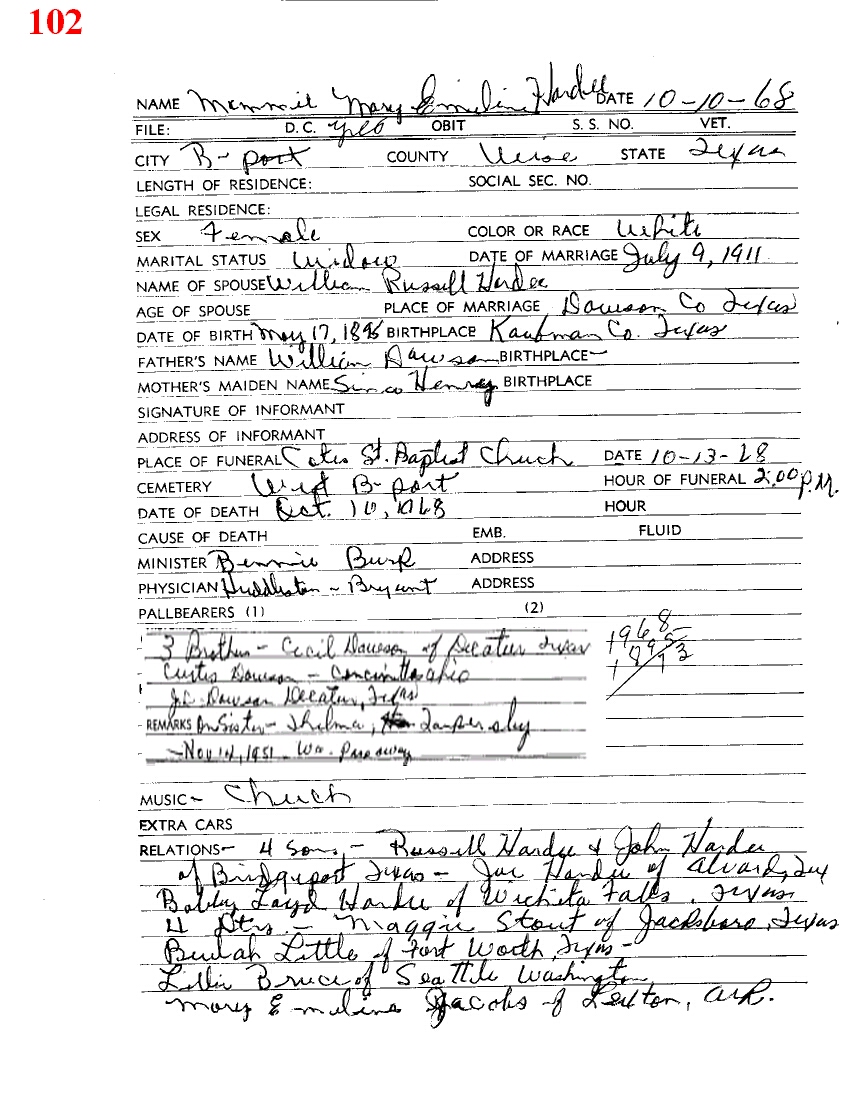 102
NAME Mary Emeline Hardee DATE 10-10-68
FILE: D.C. yes OBIT S. S. NO. VET.
CITY B-port COUNTY Wise STATE Texas
LENGTH OF RESIDENCE: SOCIAL SEC. NO.
LEGAL RESIDENCE:
SEX Female COLOR OR RACE White
MARITAL STATUS Widow DATE OF MARRIAGE July 9, 1911
NAME OF SPOUSE William Russell Hardee
AGE OF SPOUSE PLACE OF MARRIAGE Dawson Co Texas
DATE OF BIRTH May 17, 1895 BIRTHPLACE Kaufman Co. Texas
FATHER'S NAME William Dawson BIRTHPLACE-
MOTHER'S MAIDEN NAME Henry BIRTHPLACE
SIGNATURE OF INFORMANT
ADDRESS OF INFORMANT
PLACE OF FUNERAL Cates St. Baptist Church DATE 10-13-68
CEMETERY West B-port HOUR OF FUNERAL 2:00 P.M.
DATE OF DEATH Oct. 10, 1968 HOUR
CAUSE OF DEATH EMB. FLUID
MINISTER Bennie Burk ADDRESS
PHYSICIAN Huddleston - Bryant ADDRESS
PALLBEARERS (1) (2)
3 Brothers - Cecil Dawson of Decatur Texas
Curtis Dawson - Cincinatti ohio
J.C. Dawson Decatur, Texas
REMARKS Sister - Thelma,
- Nov 14, 1951 Wm. Pass away
1968
1895
73
MUSIC- Church
EXTRA CARS
RELATIONS- 4 Sons, - Russell Hardee & John Hardee
of Bridgeport Texas - Joe Hardee of Alvord, Tex
Bobby Loyd Hardee of Wichita Falls, Texas
4 Dtrs. - Maggie Stout of Jacksboro, Texas
Beulah Little of Fort Worth, Texas -
Lillie Bruce of Seattle Washington
Mary Emeline Jacobs of Lexton, Ark.